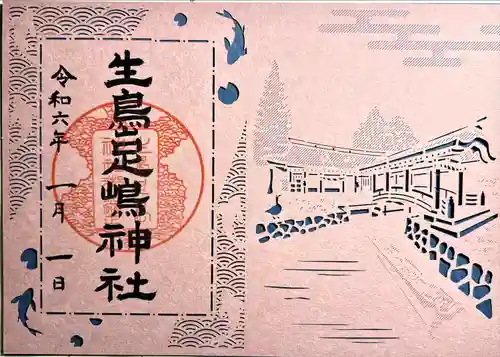 生島足嶋神社
令和六年 一月 一日